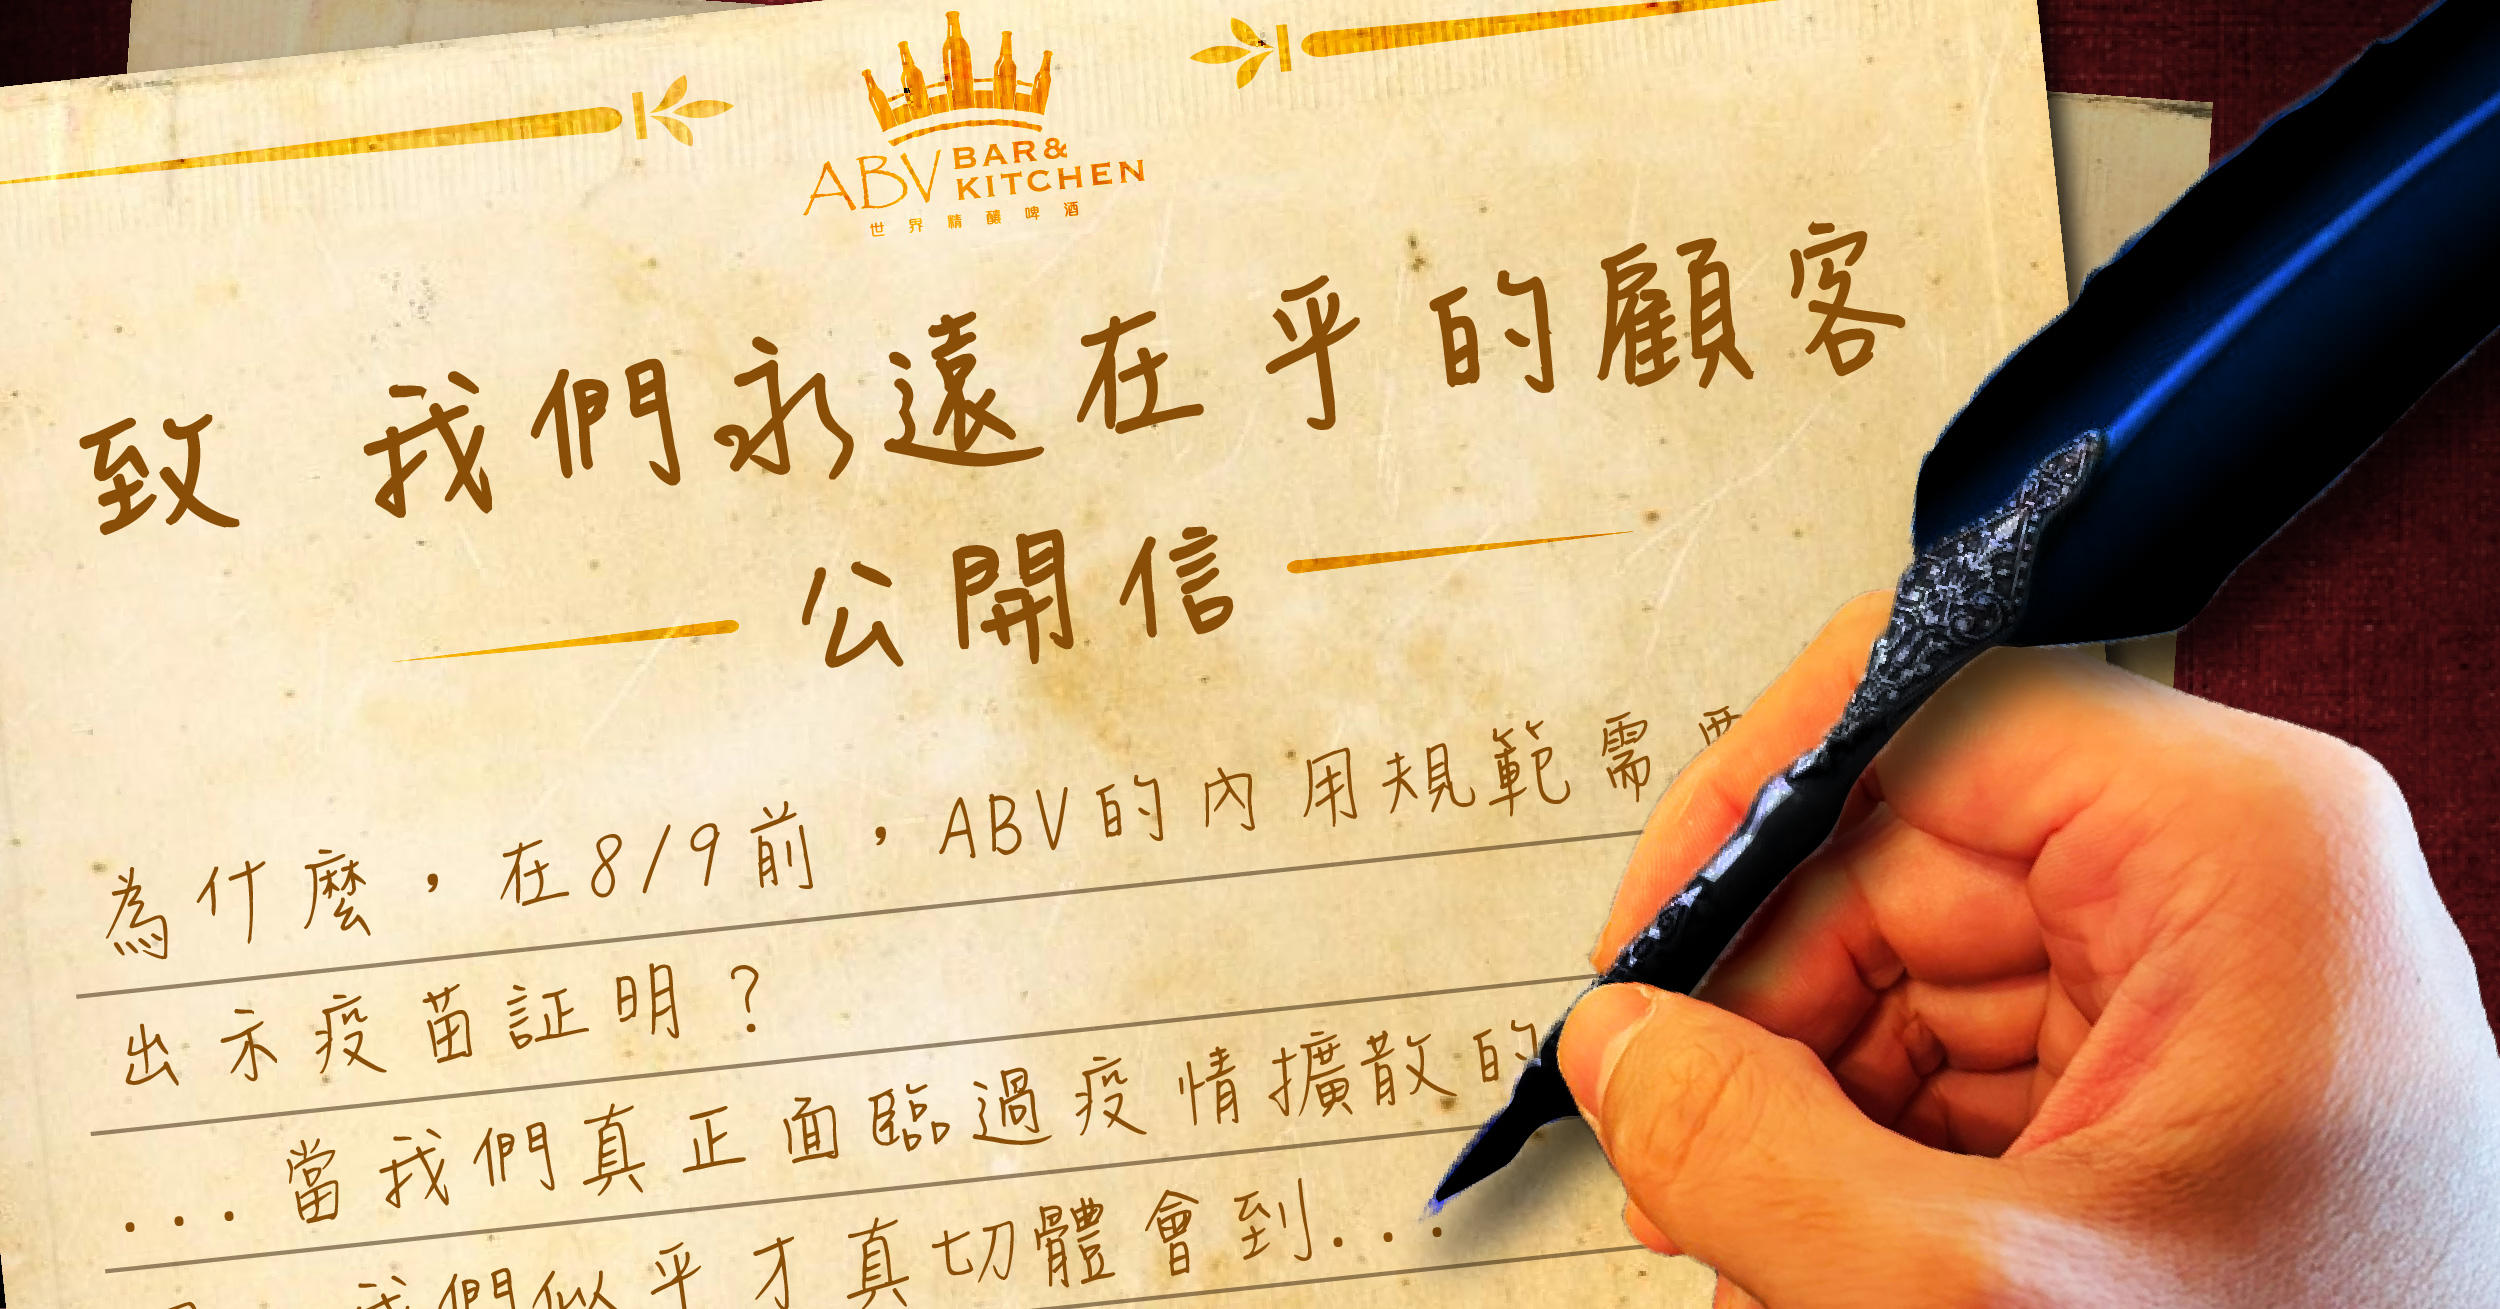 ABV BAR & KITCHEN
世界精釀啤酒
致 我們永遠在乎的顧客
公開信
為什麼，在8/9前，ABV的內用規範需要
出示疫苗証明？
...當我們真正面臨過疫情擴散的
我們似乎才真切體會到...